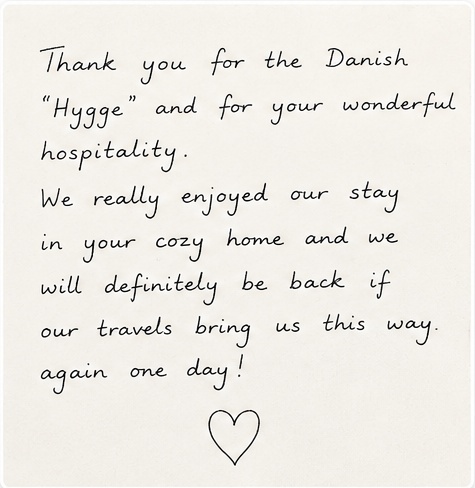 Thank you for the Danish
“Hygge” and for your wonderful
hospitality.
We really enjoyed our stay
in your cozy home and we
will definitely be back if
our travels bring us this way.
again one day!